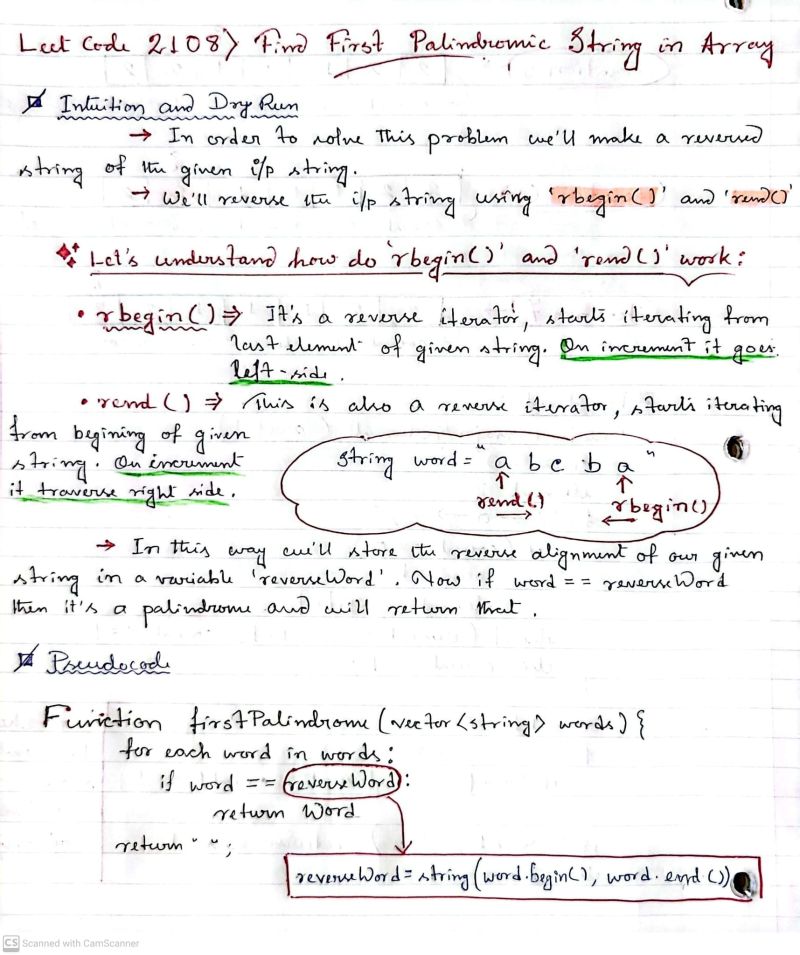 Leet Code 2108> Find First Palindromic String in Array
Intuition and Dry Run
→ In order to solve this problem we'll make a reversed
string of the given i/p string.
→ We'll reverse the i/p string using 'rbegin()' and 'rend()'
Let's understand how do 'rbegin()' and 'rend()' work:
• rbegin() ⇒ It's a reverse iterator, starts iterating from
last element of given string. On increment it goes
left-side.
• rend() ⇒ This is also a reverse iterator, starts iterating
from begining of given
string. On increment
it traverse right side.
string word = "a b c b a"
rend() rbegin()
→ In this way we'll store the reverse alignment of our given
string in a variable 'reverseWord'. Now if word == reverseWord
then it's a palindrome and will return that.
Pseudocode
Function firstPalindrome (vector<string> words) {
for each word in words:
if word == reverseWord:
return Word
return " ";
reverseWord = string(word.begin(), word.end())
CS Scanned with CamScanner